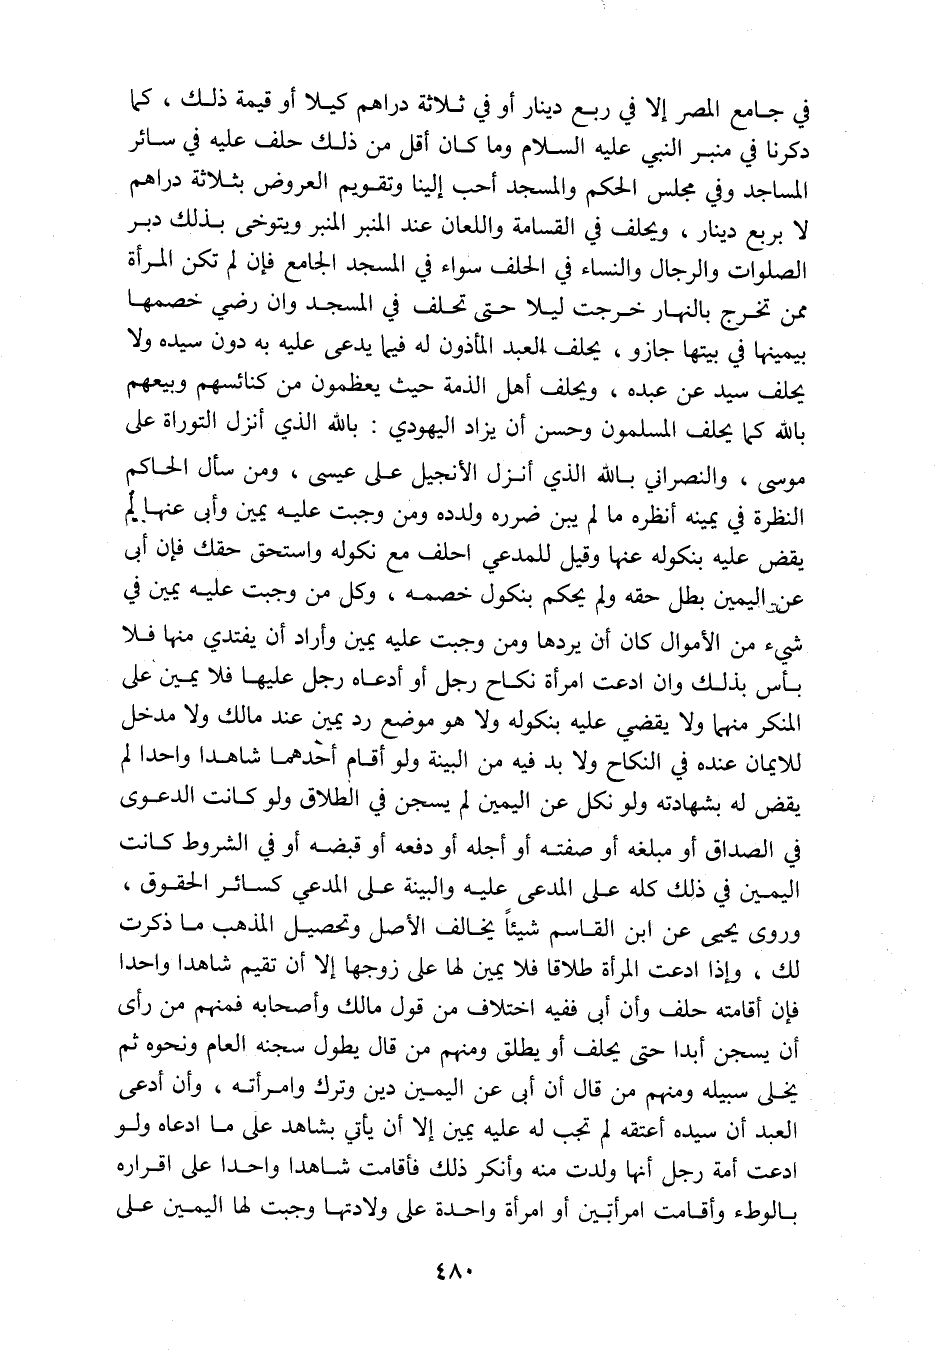 في جامع المصر إلا في ربع دينار أو في ثلاثة دراهم كيلا أو قيمة ذلك ، كما
دكرنا في منبر النبي عليه السلام وما كان أقل من ذلك حلف عليه في سائر
المساجد وفي مجلس الحكم والمسجد أحب إلينا وتقويم العروض بثلاثة دراهم
لا بربع دينار ، ويحلف في القسامة واللعان عند المنبر المنبر ويتوخى بذلك دبر
الصلوات والرجال والنساء في الحلف سواء في المسجد الجامع فإن لم تكن المرأة
ممن تخرج بالنهار خرجت ليلا حتى تحلف في المسجد وان رضي خصمها
بيمينها في بيتها جازو ، يحلف العبد المأذون له فيما يدعى عليه به دون سيده ولا
يحلف سيد عن عبده ، ويحلف أهل الذمة حيث يعظمون من كنائسهم وبيعهم
بالله كما يحلف المسلمون وحسن أن يزاد اليهودي : بالله الذي أنزل التوراة على
موسى ، والنصراني بالله الذي أنزل الأنجيل على عيسى ، ومن سأل الحاكم
النظرة في يمينه أنظره ما لم يبن ضرره ولدده ومن وجبت عليه يمين وأبى عنها لم
يقض عليه بنكوله عنها وقيل للمدعي احلف مع نكوله واستحق حقك فإن أبى
عن اليمين بطل حقه ولم يحكم بنكول خصمه ، وكل من وجبت عليه يمين في
شيء من الأموال كان أن يردها ومن وجبت عليه يمين وأراد أن يفتدي منها فلا
بأس بذلك وان ادعت امرأة نكاح رجل أو أدعاه رجل عليها فلا يمين على
المنكر منهما ولا يقضي عليه بنكوله ولا هو موضع رد يمين عند مالك ولا مدخل
للايمان عنده في النكاح ولا بد فيه من البينة ولو أقام أحدهما شاهدا واحدا لم
يقض له بشهادته ولو نكل عن اليمين لم يسجن في الطلاق ولو كانت الدعوى
في الصداق أو مبلغه أو صفته أو أجله أو دفعه أو قبضه أو في الشروط كانت
اليمين في ذلك كله على المدعى عليه والبينة على المدعي كسائر الحقوق ،
وروى يحيى عن ابن القاسم شيئاً يخالف الأصل وتحصيل المذهب ما ذكرت
لك ، وإذا ادعت المرأة طلاقا فلا يمين لها على زوجها إلا أن تقيم شاهدا واحدا
فإن أقامته حلف وأن أبى ففيه اختلاف من قول مالك وأصحابه فمنهم من رأى
أن يسجن أبدا حتى يحلف أو يطلق ومنهم من قال يطول سجنه العام ونحوه ثم
يخلى سبيله ومنهم من قال أن أبى عن اليمين دين وترك وامرأته ، وأن أدعى
العبد أن سيده أعتقه لم تجب له عليه يمين إلا أن يأتي بشاهد على ما ادعاه ولو
ادعت أمة رجل أنها ولدت منه وأنكر ذلك فأقامت شاهدا واحدا على اقراره
بالوطء وأقامت امرأتين أو امرأة واحدة على ولادتها وجبت لها اليمين على
٤٨٠